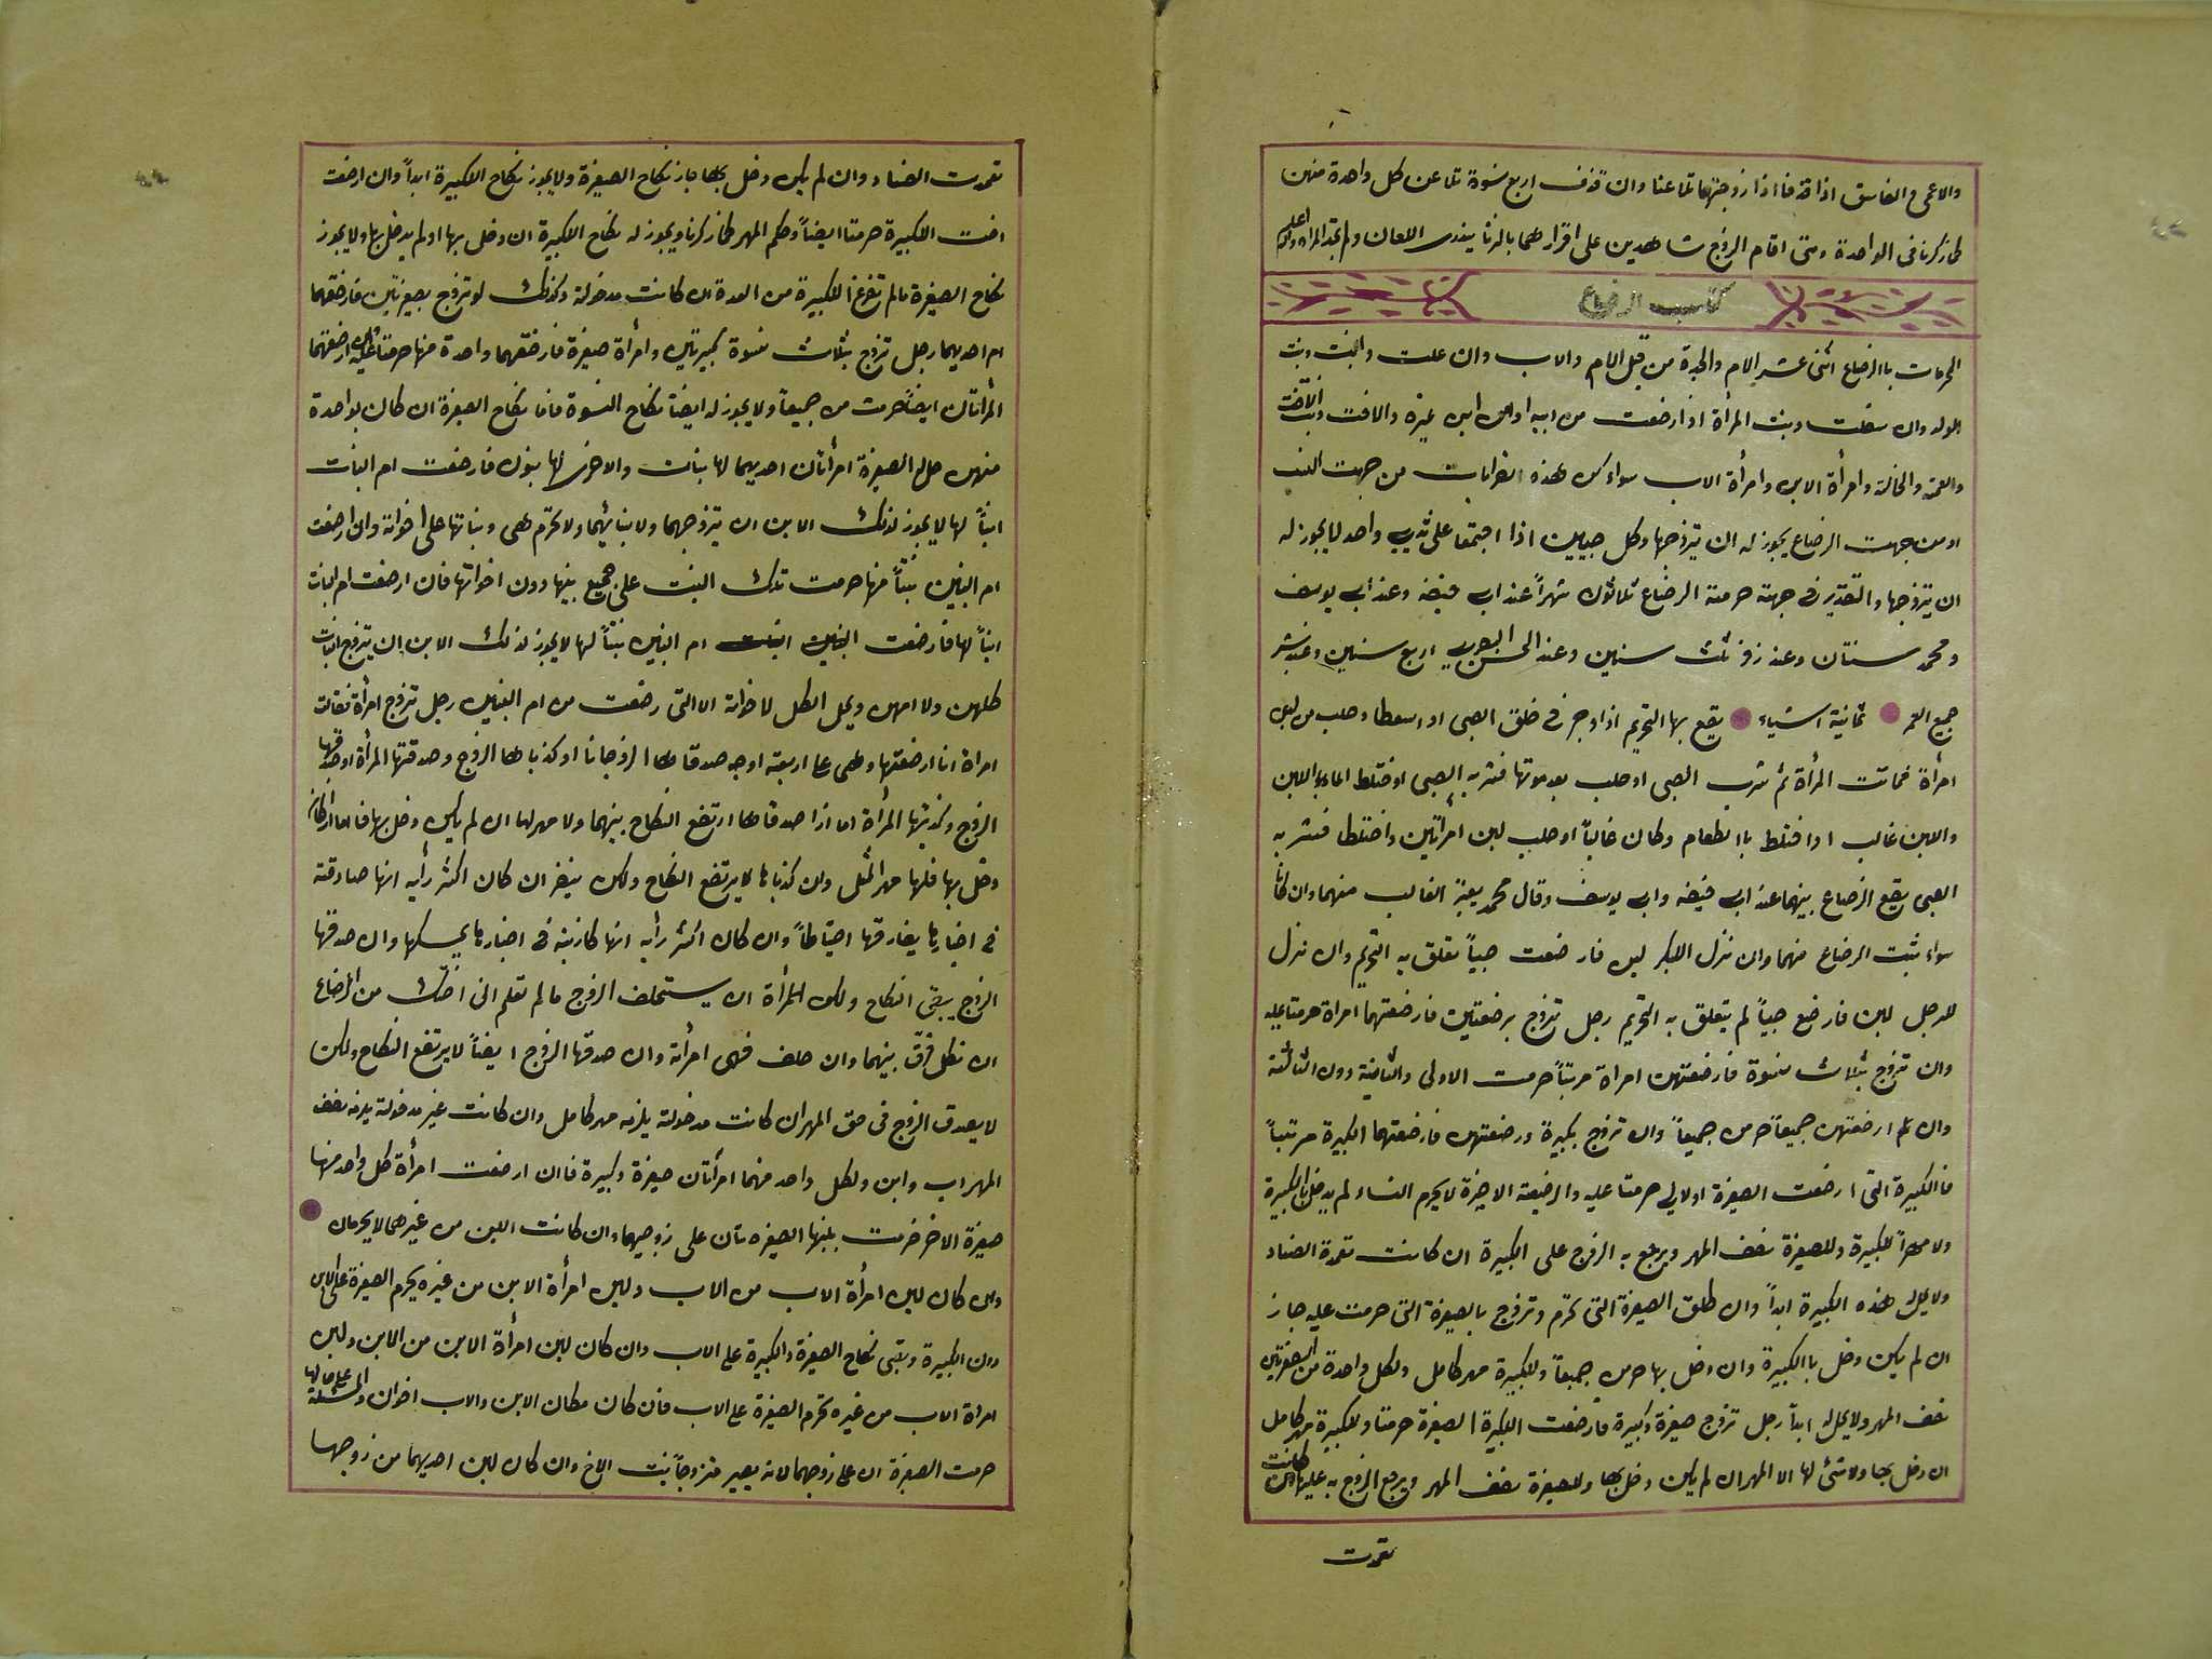 والاعمى والفاسق اذا قذفا اذا زوجتهما تلاعنا وان قذف اربع نسوة تلاعن كل واحدة منهن
كما ذكرنا فى الواحدة ومتى اقام الزوج شاهدين على اقرارهما بالزنا يندرى اللعان ولم تحد المراه والله اعلم
كتاب الرضاع
المحرمات باالرضاع اثنى عشر الام والجدة من قبل الام والاب وان علت والبنت وبنت
الولد وان سفلت وبنت المرأة اذا ارضعت من ابيه اولاس ابن غيره والاخت وبنت الاخت
والعمة والخالة وامرأة الابن وامرأة الاب سواء كن هذه القرابات من جهت النسب
او من جهت الرضاع يجوز له ان يتزوجها وكل صبيين اذا اجتمعا على ثدي واحد لا يجوز له
ان يتزوجها والتقدير فى جهة حرمة الرضاع ثلاثون شهراً عند ابى حنيفه وعند ابى يوسف
ومحمد سنتان وعند زفر ثلث سنين وعند الحسن البصري اربع سنين وعند بشر
جميع العمر ثمانية اشياء يقع بها التحريم اذا اوجر فى حلق الصبى او اسعطا وحلب من لبن
امرأة فماتت المرأة ثم شرب الصبى او حلب بعد موتها فشربه الصبى او ختلط الماء باللبن
واللبن غالب او اختلط باالطعام وكان غالباً او حلب لبن امراتين واختلطا فشربه
الصبى يقع الرضاع بينهما عند ابى حنيفه وابى يوسف وقال محمد يعتبر الغالب منهما وان كانا
سواء ثبت الرضاع منهما وان نزل للبكر لبن فارضعت صبياً تعلق به التحريم وان نزل
للرجل لبن فارضع صبياً لم يتعلق به التحريم رجل تزوج برضعتين فارضعتهما امراة حرمتا عليه
وان تزوج بثلاث نسوة فارضعتهن امراة مرتباً حرمت الاولى والثانية دون الثالثة
وان تم ارضعتهن جميعاً حرمن جميعاً وان تزوج بكبيرة ورضعتهن فارضعتهما الكبيرة مرتباً
فاالكبيرة التى ارضعت الصغيرة اولا لى حرمتا عليه والرضيعة الاخيرة لا يحرم النساء لم يدخل بالكبيرة
ولا مهراً للكبيرة وللصغيرة نصف المهر ويرجع به الزوج على الكبيرة ان كانت تعمدة الفساد
ولا يحل هذه الكبيرة ابداً وان طلق الصغيرة التى تحرم وتزوج بالصغيرة التى حرمت عليه جاز
ان لم يكن دخل باالكبيرة وان دخل بها حرمن جميعاً وللكبيرة مهر كامل ولكل واحدة من الصغرتين
نصف المهر ولا يحل له ابداً رجل تزوج صغيرة وكبيرة فارضعت الكبيرة الصغيرة حرمتا وللكبيرة مهر كامل
ان دخل بها ولا شئ لها الا المهر ان لم يكن دخل بها وللصغيرة نصف المهر ويرجع الزوج به عليها ان كانت
تعمدت
تعمدت الفساد وان لم يكن دخل بها جاز نكاح الصغيرة ولا يجوز نكاح الكبيرة ابداً وان ارضعت
اخت الكبيرة حرمتا ايضاً وحكم المهر كما ذكرنا ويجوز له نكاح الكبيرة ان دخل بها او لم يدخل بها ولا يجوز
نكاح الصغيرة مالم تفرغ الكبيرة من العدة ان كانت مدخولة وكذلك لو تزوج بصغيرتين فارضعتهما
ام احديهما رجل تزوج بثلاث نسوة كبيرتين وامرأة صغيرة فارضعتهما واحدة منها حرمتا عليه ارضعتهما
المرأتان ايضاً حرمت من جميعاً ولا يجوز له ايضاً نكاح النسوة فاما نكاح الصغيرة ان كان بواحدة
منهن حل له الصغيرة امرأتان احديهما لها بنات والاخرى لها بنون فارضعت ام البنات
ابناً لها لا يجوز لذلك الابن ان يتزوجهما ولا بنائهما ولا تحرم هى وبناتها على اخوانه وان ارضعت
ام البنين بنتاً منها حرمت تلك البنت على جميع بنيها دون اخواتها فان ارضعت ام البنات
ابناً لها فارضعت ام البنين بنتاً لها لا يجوز لذلك الابن ان يتزوج البنات
كلهن ولا امهن ويحل الكل لاخوانه الا التى رضعت من ام البنين رجل تزوج امرأة فقالت
امراة انا ارضعتها وهى على اربعة اوجه صدقاها الزوجانا او كذباها الزوج وصدقتها المرأة او صدقها
الزوج وكذبتها المرأة اما اذا صدقاها ارتفع النكاح بينهما ولا مهر لها ان لم يكن دخل بها فاما ان كان
دخل بها فلها مهر المثل وان كذباها لا يرتفع النكاح ولكن ينظر ان كان اكثر رأيه انها صادقة
فى اخبارها يفارقها احتياطاً وان كان اكثر رأيه انها كاذبة فى اخبارها يمسكها وان صدقها
الزوج يبقى النكاح ولكن للمرأة ان يستحلف الزوج مالم تعلم انى اختك من الرضاع
ان نكل فرق بينهما وان حلف فهى امرأته وان صدقها الزوج ايضاً لا يرتفع النكاح ولكن
لا يصدق الزوج فى حق المهر ان كانت مدخولة يلزمه مهر كامل وان كانت غير مدخولة يلزمه نصف
المهر اب وابن ولكل واحد منهما امرأتان صغيرة وكبيرة فاان ارضعت امرأة كل واحد منهما
صغيرة الاخر حرمت بلبنها الصغيرتان على زوجيهما وان كانت اللبن من غيرهما لا يحرمان
وان كان لبن امرأة الاب من الاب ولبن امرأة الابن من غيره يحرم الصغيرة على الابن
دون الكبيرة وبقى نكاح الصغيرة والكبيرة على الاب وان كان لبن امرأة الابن من الابن ولبن
امراة الاب من غيره تحرم الصغيرة على الاب فان كان مكان الابن والاب اخوان والمسئلة على حالها
حرمت الصغيرة ان على زوجهما لانه يصير متزوجاً بنت الاخ وان كان لبن احديهما من زوجها